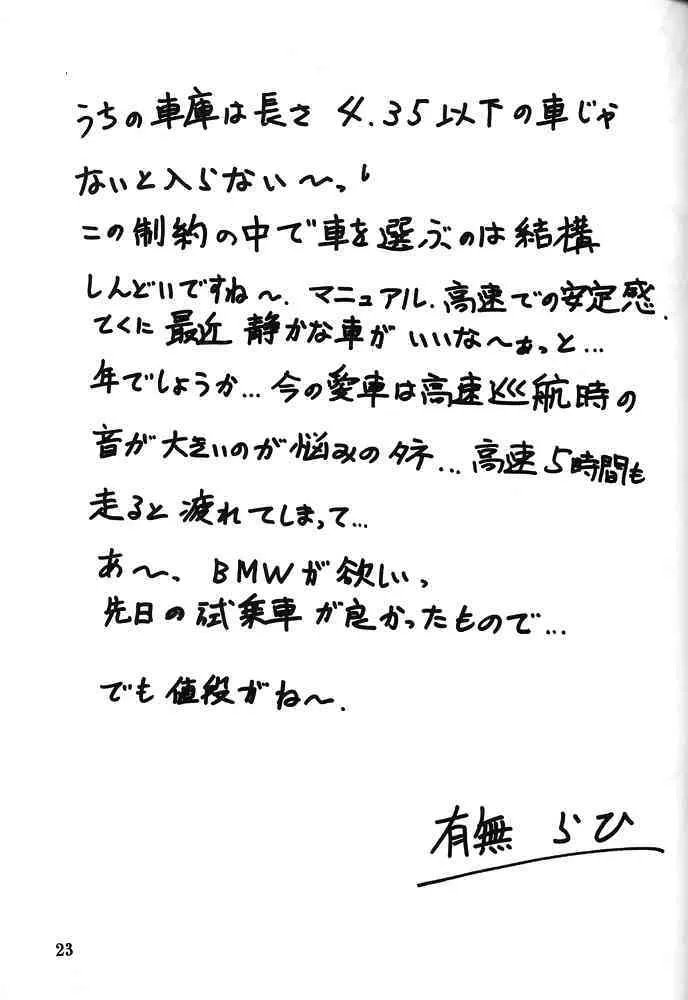 うちの車庫は長さ 4.35以下の車じゃ
ないと入らない〜っ!
この制約の中で車を選ぶのは結構
しんどいですね〜、マニュアル、高速での安定感、
てくに最近 静かな車が いいな〜ぁっと...
年でしょうか... 今の愛車は高速巡航時の
音が大きいのが悩みのタネ... 高速5時間も
走ると疲れてしまって...
あ〜、BMWが欲しいっ
先日の試乗車が良かったもので...
でも値段がね〜.
有無 らひ
23